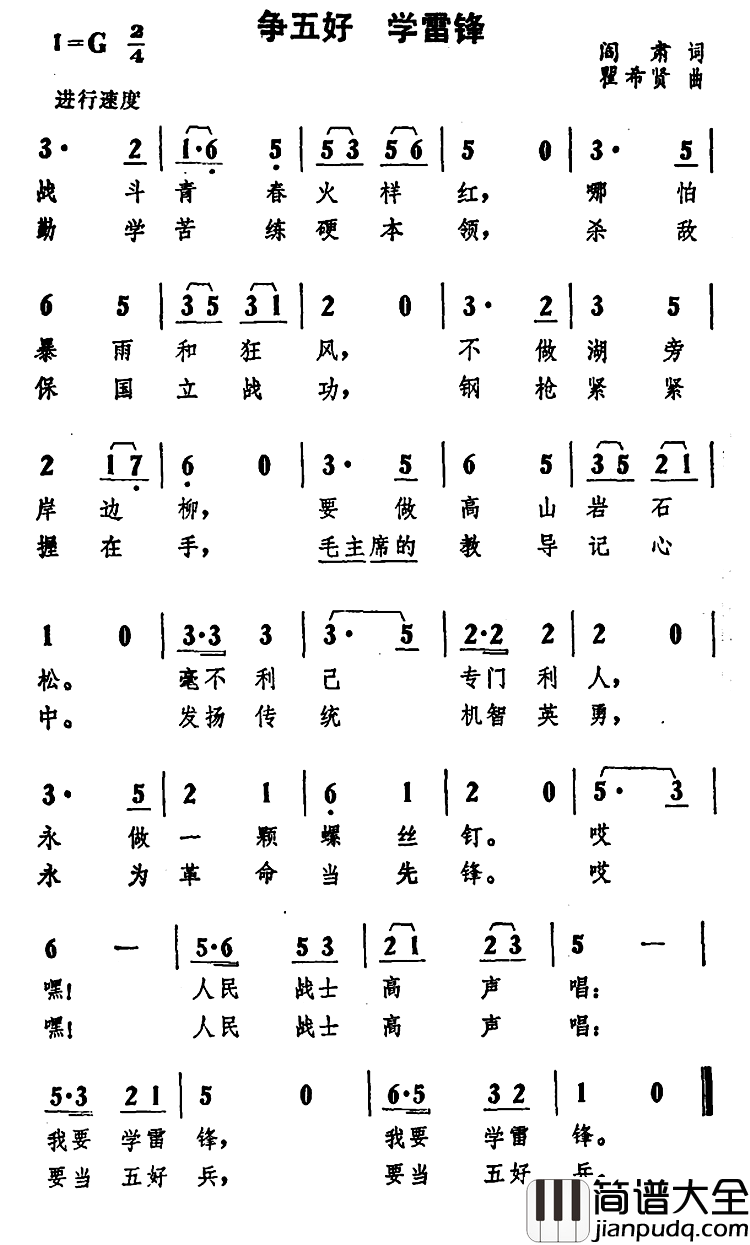 争五好 学雷锋
1=G 2/4
阎肃 词
瞿希贤 曲
进行速度
3· 2 | 1·6 5 | 53 56 | 5 0 | 3· 5 |
战斗青春火样红，哪怕
勤学苦练硬本领，杀敌
6 5 | 35 31 | 2 0 | 3· 2 | 3 5 |
暴雨和狂风，不做湖旁
保国立战功，钢枪紧紧
2 17 | 6 0 | 3· 5 | 6 5 | 35 21 |
岸边柳，要做高山岩石
握在手，毛主席的教导记心
1 0 | 3·3 3 | 3· 5 | 2·2 2 | 2 0 |
松。毫不利己专门利人，
中。发扬传统机智英勇，
3· 5 | 2 1 | 6 1 | 2 0 | 5· 3 |
永做一颗螺丝钉。哎
永为革命当先锋。哎
6 — | 5·6 53 | 21 23 | 5 — |
嘿！人民战士高声唱：
嘿！人民战士高声唱：
5·3 21 | 5 0 | 6·5 32 | 1 0 ‖
我要学雷锋，我要学雷锋。
要当五好兵，要当五好兵。
简谱大全
jianpudq.com